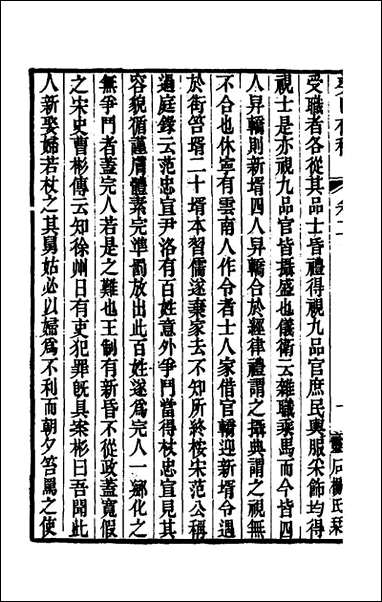 受職者各從其品士皆禮得視九品官庶民輿服采飾均得
視士是亦視九品官皆攝盛也儀衛云雜職乘馬而今皆四
人昇轎則新壻四人昇轎合於經律禮謂之攝典謂之視無
不合也休寧有雲南人作令者士人家借官轎迎新壻令遇
於街笞壻二十壻本習儒遂棄家去不知所終桉宋范公稱
過庭錄云范忠宣尹洛有百姓意外爭鬥當得杖忠宣見其
容貌循謹膚體素完準罰放出此百姓遂爲完人一鄉化之
無爭鬥者蓋完人若是之難也王制有新昏不從政蓋寬假
之宋史曹彬傳云知徐州日有吏犯罪旣具案彬曰吾聞此
人新娶婦若杖之其舅姑必以婦爲不利而朝夕笞罵之使